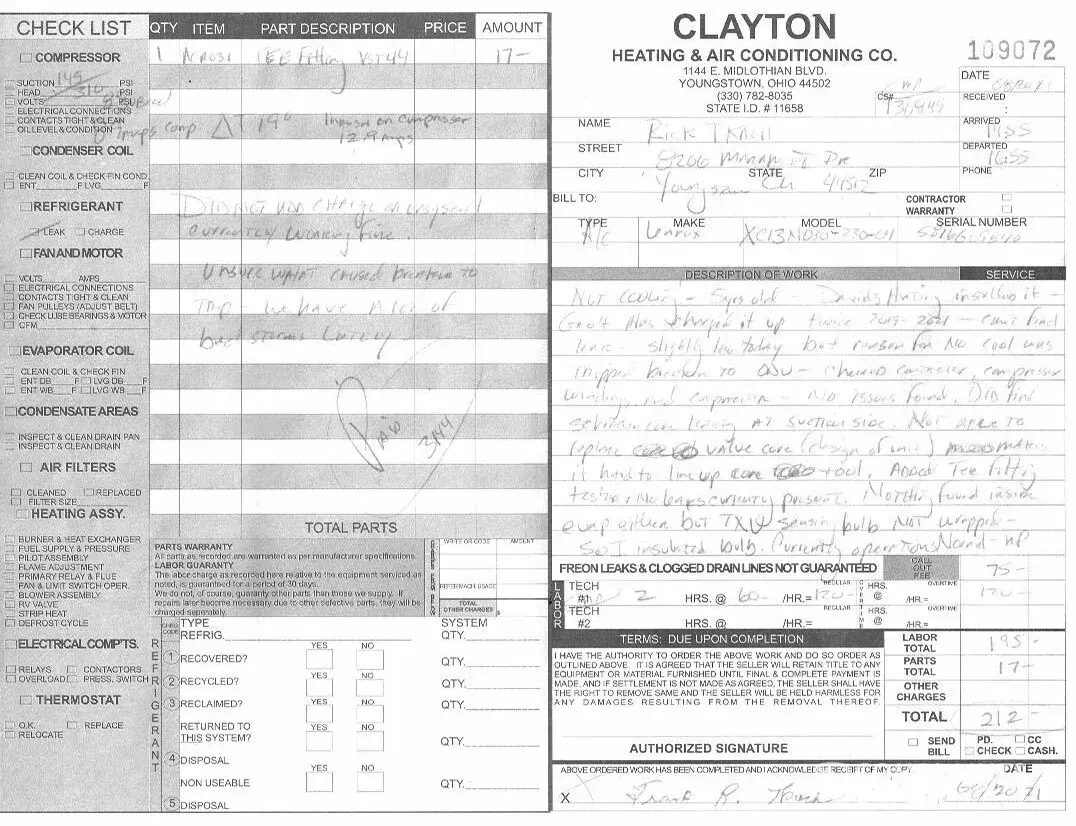 CHECK LIST
QTY ITEM PART DESCRIPTION PRICE AMOUNT
COMPRESSOR
1 TEE Fitting VST44 17-
SUCTION 145 PSI
HEAD 310 PSI
VOLTS PSI
ELECTRICAL CONNECTIONS
CONTACTS TIGHT & CLEAN
OIL LEVEL & CONDITION
Amps Comp ΔT 19° Inrush on compressor
12.9 Amps
CONDENSER COIL
CLEAN COIL & CHECK FIN COND
ENT. F LVG F
REFRIGERANT
LEAK CHARGE
DID NOT ADD CHARGE
Currently working fine.
FAN AND MOTOR
VOLTS AMPS
ELECTRICAL CONNECTIONS
CONTACTS TIGHT & CLEAN
FAN PULLEYS (ADJUST BELT)
CHECK LUBE BEARINGS & MOTOR
CFM
Unsure what caused breaker to
Trip - we have A lot of
bad storms lately
EVAPORATOR COIL
CLEAN COIL & CHECK FIN
ENT DB F LVG DB F
ENT WB F LVG WB F
CONDENSATE AREAS
INSPECT & CLEAN DRAIN PAN
INSPECT & CLEAN DRAIN
Paid 3144
AIR FILTERS
CLEANED REPLACED
FILTER SIZE
HEATING ASSY.
BURNER & HEAT EXCHANGER
FUEL SUPPLY & PRESSURE
PILOT ASSEMBLY
FLAME ADJUSTMENT
PRIMARY RELAY & FLUE
FAN & LIMIT SWITCH OPER.
BLOWER ASSEMBLY
RV VALVE
STRIP HEAT
DEFROST CYCLE
ELECTRICAL COMP'TS.
RELAYS CONTACTORS
OVERLOAD PRESS. SWITCH
THERMOSTAT
O.K. REPLACE
RELOCATE
TOTAL PARTS
PARTS WARRANTY
All parts as recorded are warranted as per manufacturer specifications.
LABOR GUARANTY
The labor charge as recorded here relative to the equipment serviced as
noted, is guaranteed for a period of 30 days.
We do not, of course, guaranty other parts than those we supply. If
repairs later become necessary due to other defective parts, they will be
charged seperately.
WRITE OR CODE AMOUNT
TOTAL
OTHER CHARGES $
REFRIGERANT
CHRG. CODE TYPE REFRIG. SYSTEM QTY.
YES NO
1 RECOVERED? QTY.
YES NO
2 RECYCLED? QTY.
YES NO
3 RECLAIMED? QTY.
YES NO
RETURNED TO
THIS SYSTEM? QTY.
4 DISPOSAL
YES NO
NON USEABLE QTY.
5 DISPOSAL
CLAYTON
HEATING & AIR CONDITIONING CO.
1144 E. MIDLOTHIAN BLVD.
YOUNGSTOWN, OHIO 44502
(330) 782-8035
STATE I.D. # 11658
109072
DATE
CS#
RECEIVED
NAME Rick
ARRIVED
STREET
DEPARTED 1655
CITY STATE ZIP PHONE
Oh 44512
BILL TO:
CONTRACTOR
WARRANTY
TYPE MAKE MODEL SERIAL NUMBER
A/C Lennox XC13N030-230-
DESCRIPTION OF WORK SERVICE
Not cooling - 5yrs old - Davids Heating installed it -
has charged it up twice 2019-2021 - can't find
leak. Slightly low today but reason for No cool was
tripped breaker to ODU - checked contactor, compressor
windings and capacitor - No issues found. DID find
schrader core leaking AT suction side. Not able to
replace valve core (design of unit) makes
it hard to line up core tool. Added Tee fitting
tested, No leaks currently present. Nothing found inside
evap either but TXV sensing bulb NOT wrapped -
So I insulated bulb. Currently operations Normal - MP
FREON LEAKS & CLOGGED DRAIN LINES NOT GUARANTEED
CALL OUT FEE 75-
LABOR
TECH #1 2 HRS. @ 60- /HR.= REGULAR 120- OVERTIME HRS. @ /HR.= 120-
TECH #2 HRS. @ /HR.= REGULAR OVERTIME HRS. @ /HR.=
TERMS: DUE UPON COMPLETION
I HAVE THE AUTHORITY TO ORDER THE ABOVE WORK AND DO SO ORDER AS
OUTLINED ABOVE. IT IS AGREED THAT THE SELLER WILL RETAIN TITLE TO ANY
EQUIPMENT OR MATERIAL FURNISHED UNTIL FINAL & COMPLETE PAYMENT IS
MADE, AND IF SETTLEMENT IS NOT MADE AS AGREED, THE SELLER SHALL HAVE
THE RIGHT TO REMOVE SAME AND THE SELLER WILL BE HELD HARMLESS FOR
ANY DAMAGES RESULTING FROM THE REMOVAL THEREOF.
LABOR TOTAL 195-
PARTS TOTAL 17-
OTHER CHARGES
TOTAL 212-
AUTHORIZED SIGNATURE
SEND BILL PD. CHECK CC CASH.
ABOVE ORDERED WORK HAS BEEN COMPLETED AND I ACKNOWLEDGE RECEIPT OF MY COPY.
DATE
X Frank R.